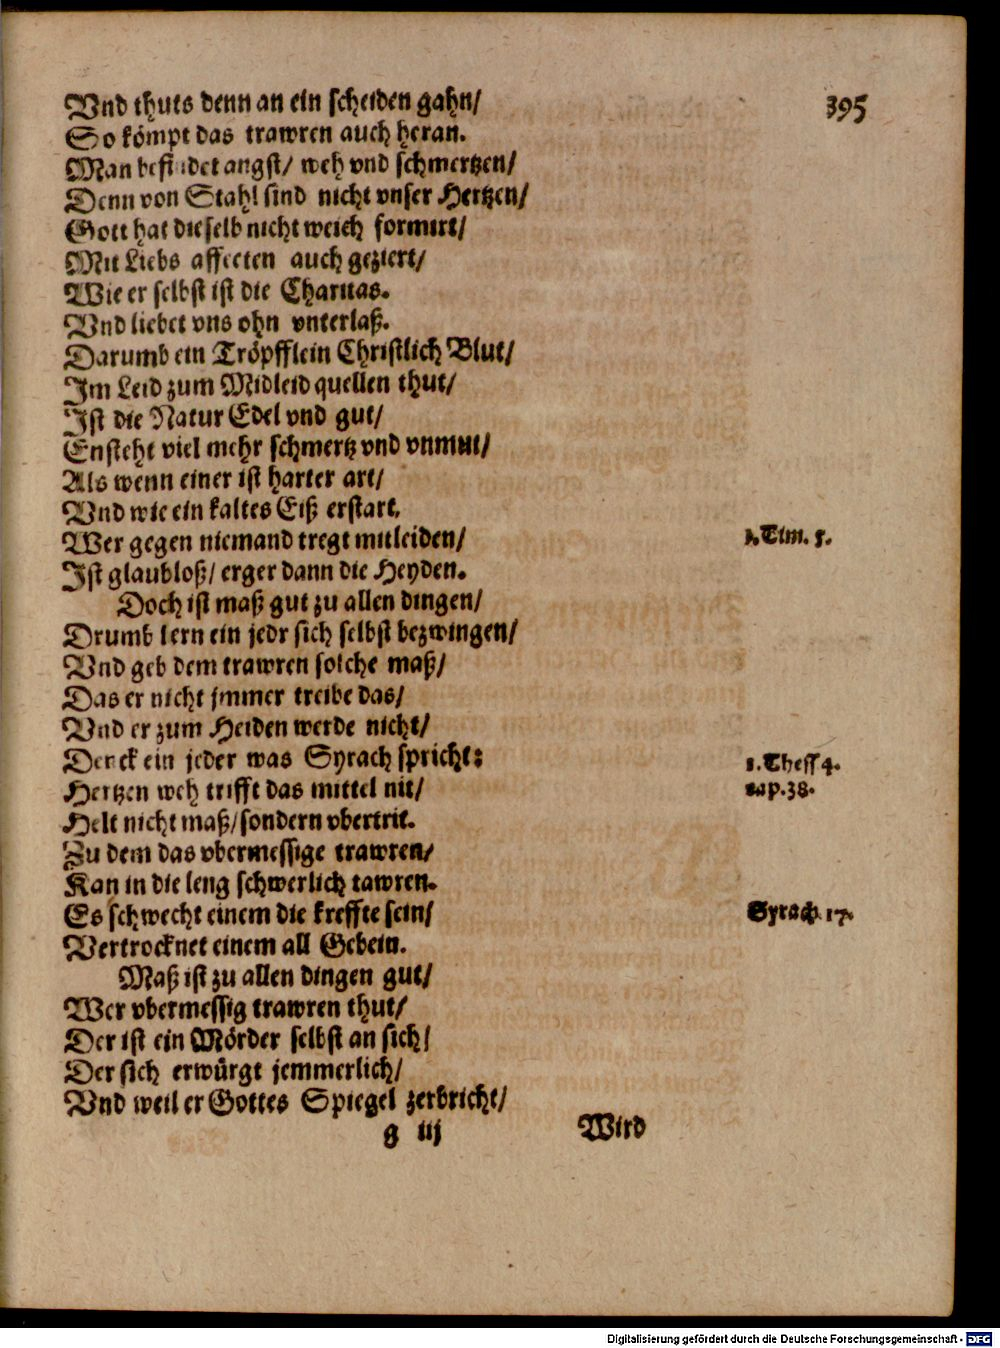 395
Vnd thuts denn an ein scheiden gahn/
So kömpt das trawren auch heran.
Man befindet angst/ weh vnd schmertzen/
Denn von Stahl sind nicht vnser Hertzen/
Gott hat dieselb nicht weich formirt/
Mit Liebs affecten auch geziert/
Wie er selbst ist die Charitas.
Vnd liebet vns ohn vnterlaß.
Darumb ein Tröpfflein Christlich Blut/
Im Leid zum Midleid quellen thut/
Ist die Natur Edel vnd gut/
Ensteht viel mehr schmertz vnd vnmut/
Als wenn einer ist harter art/
Vnd wie ein kaltes Eiß erstart.
Wer gegen niemand tregt mitleiden/
1. Tim. 5.
Ist glaubloß/ erger dann die Heyden.
Doch ist maß gut zu allen dingen/
Drumb lern ein jedr sich selbst bezwingen/
Vnd geb dem trawren solche maß/
Das er nicht jmmer treibe das/
Vnd er zum Heiden werde nicht/
Denck ein jeder was Syrach spricht:
1. Thess 4.
Hertzen weh trifft das mittel nit/
cap. 38.
Helt nicht maß/ sondern vbertrit.
Zu dem das vbermessige trawren/
Kan in die leng schwerlich tawren.
Es schwecht einem die kreffte sein/
Syrach. 17.
Vertrocknet einem all Gebein.
Maß ist zu allen dingen gut/
Wer vbermessig trawren thut/
Der ist ein Mörder selbst an sich/
Der sich erwürgt jemmerlich/
Vnd weil er Gottes Spiegel zerbricht/
g iij Wird
Digitalisierung gefördert durch die Deutsche Forschungsgemeinschaft - DFG